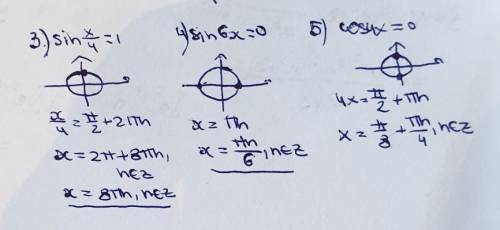 3.) sin x/4 = 1
x/4 = π/2 + 2πn
x = 2π + 8πn,
n∈z
x = 8πn, n∈z
4.) sin6x=0
x = πn
x = πn/6, n∈z
5) cos4x=0
4x = π/2 + πn
x = π/8 + πn/4, n∈z